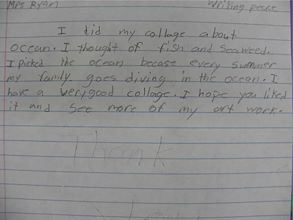 Mrs Ryan Writing peice
I did my collage about
ocean. I thought of fish and seaweed.
I picked the ocean becase every summer
my family goes diving in the ocean. I
have a very good collage. I hope you liked
it and see more of my art work.
Thank